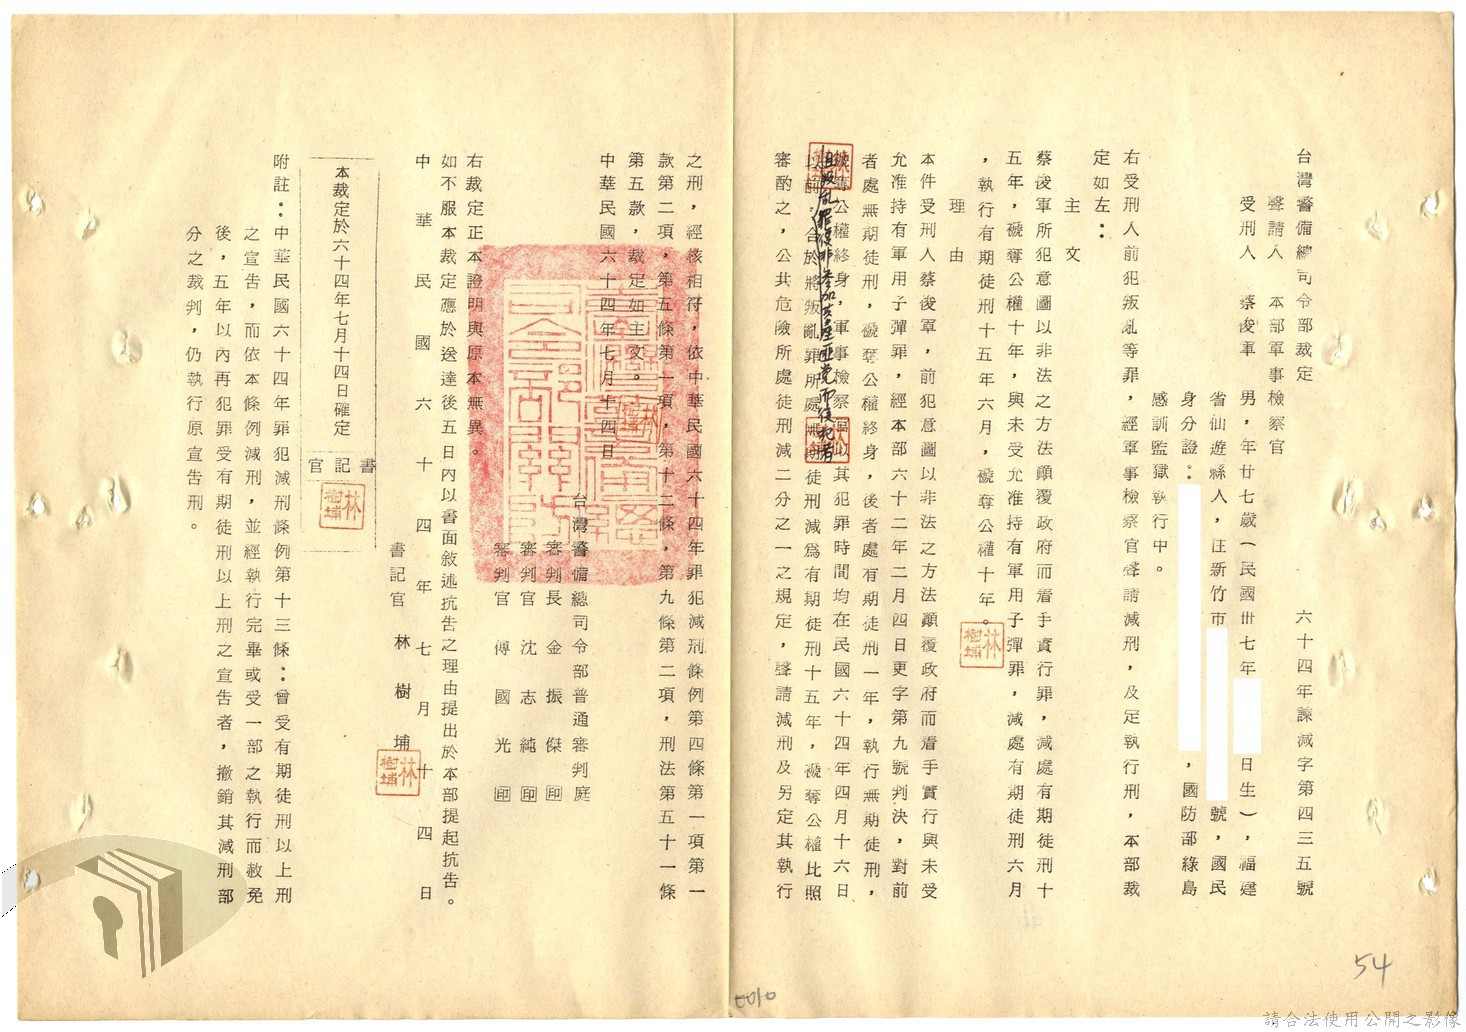 台灣警備總司令部裁定
六十四年諫減字第四三五號
聲請人　本部軍事檢察官
受刑人　蔡俊軍　男，年廿七歲（民國卅七年
日生），福建
省仙遊縣人，住新竹市
號，國民
身分證：
，國防部綠島
感訓監獄執行中。
右受刑人前犯叛亂等罪，經軍事檢察官聲請減刑，及定執行刑，本部裁
定如左：
主文
蔡俊軍所犯意圖以非法之方法顛覆政府而着手實行罪，減處有期徒刑十
五年，褫奪公權十年，與未受允准持有軍用子彈罪，減處有期徒刑六月
，執行有期徒刑十五年六月，褫奪公權十年。
林樹埔
理由
本件受刑人蔡俊軍，前犯意圖以非法之方法顛覆政府而着手實行與未受
允准持有軍用子彈罪，經本部六十二年二月四日更字第九號判決，對前
者處無期徒刑，褫奪公權終身，後者處有期徒刑一年，執行無期徒刑，
褫奪公權終身，軍事檢察官以其犯罪時間均在民國六十四年四月十六日
且叛亂罪復非參加共產黨而後犯者
以前，合於將叛亂罪所處無期徒刑減爲有期徒刑十五年，褫奪公權比照
審酌之，公共危險所處徒刑減二分之一之規定，聲請減刑及另定其執行
54
之刑，經核相符，依中華民國六十四年罪犯減刑條例第四條第一項第一
款第二項，第五條第一項，第十二條，第九條第二項，刑法第五十一條
第五款，裁定如主文。
林樹埔
中華民國六十四年七月十四日
台灣警備總司令部普通審判庭
審判長　金振傑　印
審判官　沈志純　印
審判官　傅國光　印
右裁定正本證明與原本無異。
如不服本裁定應於送達後五日內以書面敘述抗告之理由提出於本部提起抗告。
中華民國六十四年七月十四日
書記官　林樹埔
林樹埔
本裁定於六十四年七月十四日確定
書記官
林樹埔
附註：中華民國六十四年罪犯減刑條例第十三條：曾受有期徒刑以上刑
之宣告，而依本條例減刑，並經執行完畢或受一部之執行而赦免
後，五年以內再犯罪受有期徒刑以上刑之宣告者，撤銷其減刑部
分之裁判，仍執行原宣告刑。
請合法使用公開之影像